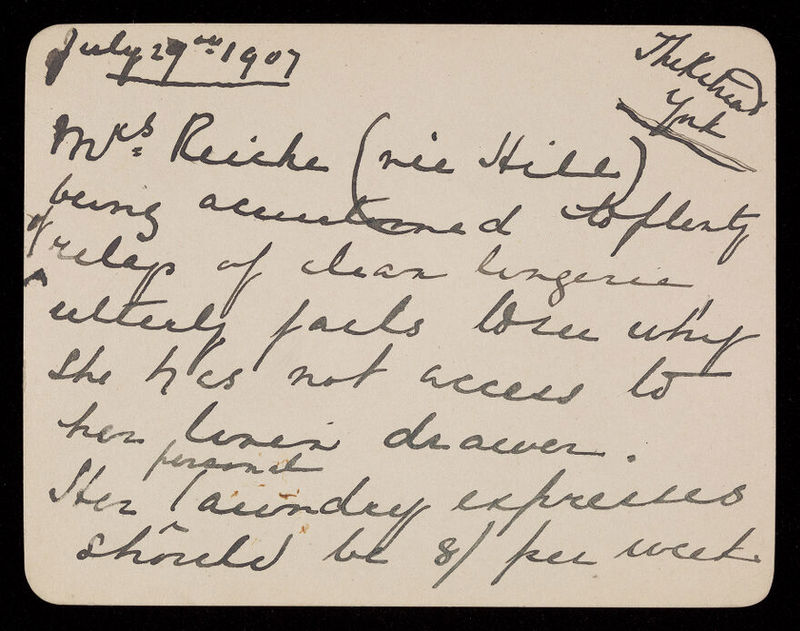 July 29th 1907
The Retreat
York
Mrs. Reiche (née Hill)
being accustomed to plenty
of relays of clean lingerie
utterly fails to see why
she has not access to
her linen drawer.
personal
Her laundry expenses
should be 8/ per week.